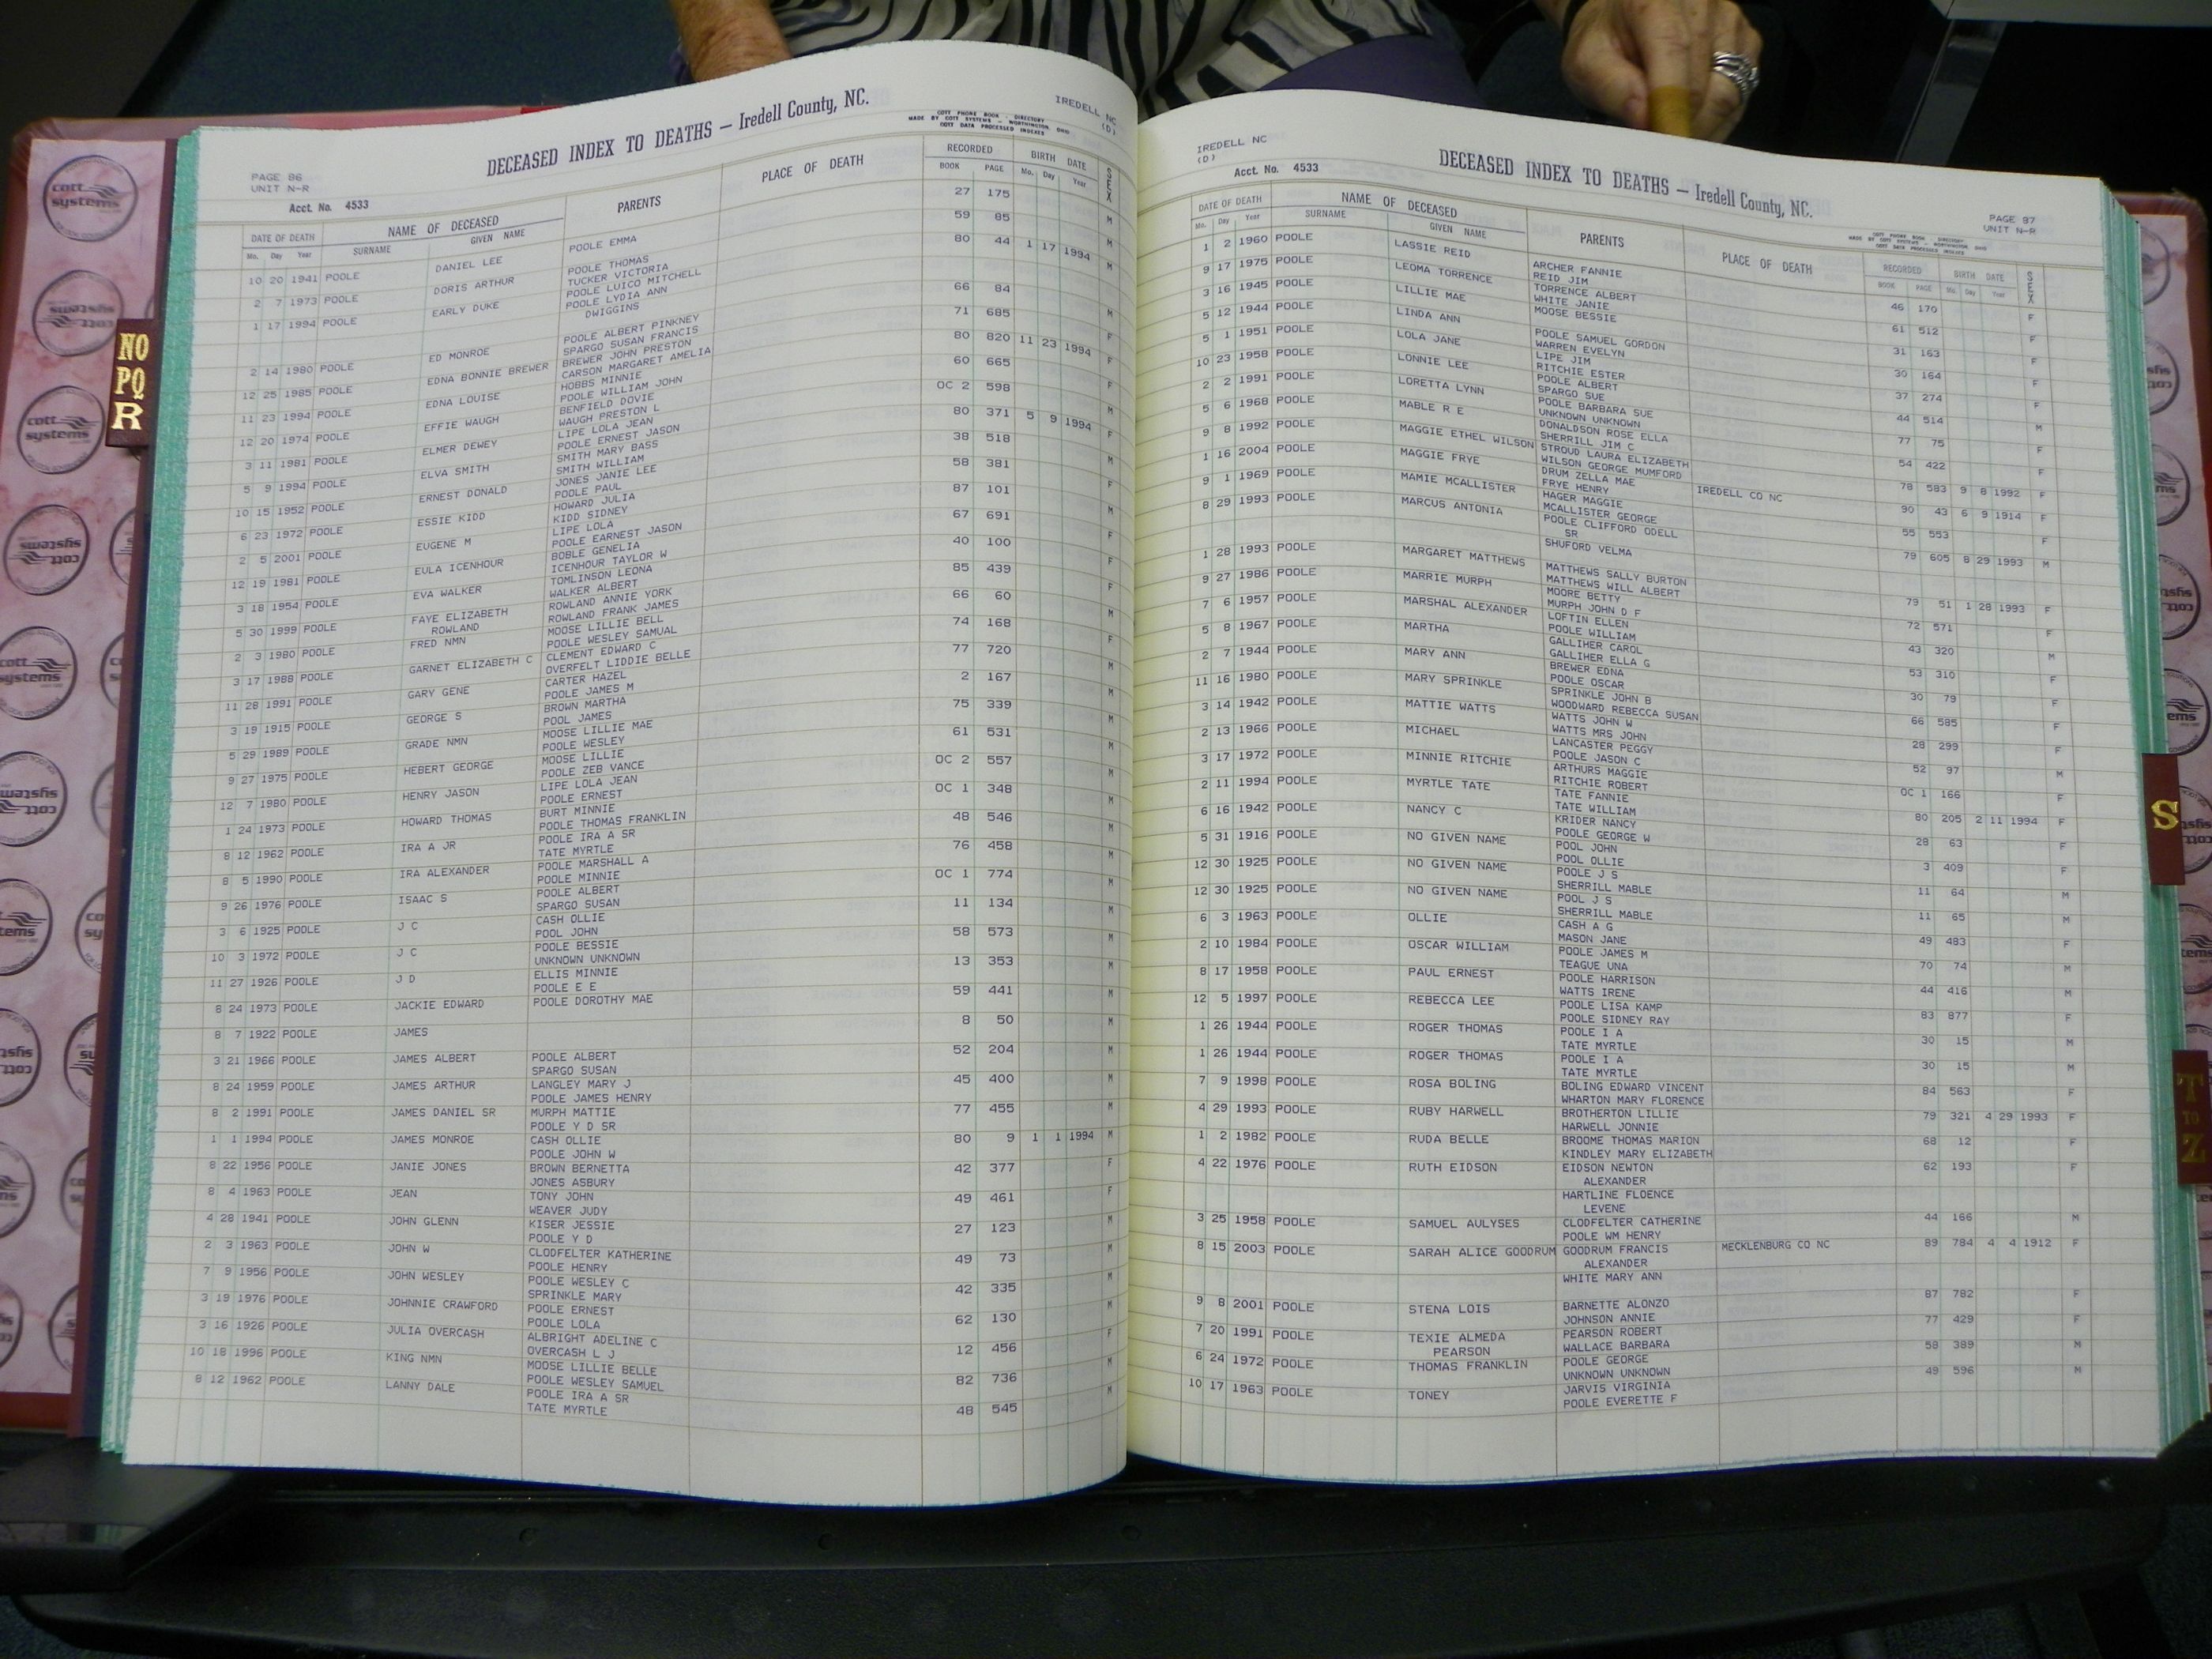 IREDELL NC
(D)
DECEASED INDEX TO DEATHS — Iredell County, NC.
COTT PHONE BOOK - DIRECTORY
MADE BY COTT SYSTEMS - WORTHINGTON, OHIO
COTT DATA PROCESSED INDEXES
PAGE 86
UNIT N-R
Acct. No. 4533
DATE OF DEATH NAME OF DECEASED PARENTS PLACE OF DEATH RECORDED BIRTH DATE SEX
Mo. Day Year SURNAME GIVEN NAME BOOK PAGE Mo. Day Year
10 20 1941 POOLE DANIEL LEE POOLE EMMA 27 175 M
2 7 1973 POOLE DORIS ARTHUR POOLE THOMAS 59 85 M
TUCKER VICTORIA
1 17 1994 POOLE EARLY DUKE POOLE LUICO MITCHELL 80 44 1 17 1994 M
POOLE LYDIA ANN
DWIGGINS
2 14 1980 POOLE ED MONROE POOLE ALBERT PINKNEY 66 84 M
SPARGO SUSAN FRANCIS
12 25 1985 POOLE EDNA BONNIE BREWER BREWER JOHN PRESTON 71 685 F
CARSON MARGARET AMELIA
11 23 1994 POOLE EDNA LOUISE HOBBS MINNIE 80 820 11 23 1994 F
POOLE WILLIAM JOHN
12 20 1974 POOLE EFFIE WAUGH BENFIELD DOVIE 60 665 F
WAUGH PRESTON L
3 11 1981 POOLE ELMER DEWEY LIPE LOLA JEAN OC 2 598 M
POOLE ERNEST JASON
5 9 1994 POOLE ELVA SMITH SMITH MARY BASS 80 371 5 9 1994 F
SMITH WILLIAM
10 15 1952 POOLE ERNEST DONALD JONES JANIE LEE 38 518 M
POOLE PAUL
6 23 1972 POOLE ESSIE KIDD HOWARD JULIA 58 381 F
KIDD SIDNEY
2 5 2001 POOLE EUGENE M LIPE LOLA 87 101 M
POOLE EARNEST JASON
12 19 1981 POOLE EULA ICENHOUR BOBLE GENELIA 67 691 F
ICENHOUR TAYLOR W
3 18 1954 POOLE EVA WALKER TOMLINSON LEONA 40 100 F
WALKER ALBERT
5 30 1999 POOLE FAYE ELIZABETH ROWLAND ANNIE YORK 85 439 F
ROWLAND ROWLAND FRANK JAMES
2 3 1980 POOLE FRED NMN MOOSE LILLIE BELL 66 60 M
POOLE WESLEY SAMUAL
3 17 1988 POOLE GARNET ELIZABETH C CLEMENT EDWARD C 74 168 F
OVERFELT LIDDIE BELLE
11 28 1991 POOLE GARY GENE CARTER HAZEL 77 720 M
POOLE JAMES M
3 19 1915 POOLE GEORGE S BROWN MARTHA 2 167 M
POOL JAMES
5 29 1989 POOLE GRADE NMN MOOSE LILLIE MAE 75 339 M
POOLE WESLEY
9 27 1975 POOLE HEBERT GEORGE MOOSE LILLIE 61 531 M
POOLE ZEB VANCE
12 7 1980 POOLE HENRY JASON LIPE LOLA JEAN OC 2 557 M
POOLE ERNEST
1 24 1973 POOLE HOWARD THOMAS BURT MINNIE OC 1 348 M
POOLE THOMAS FRANKLIN
8 12 1962 POOLE IRA A JR POOLE IRA A SR 48 546 M
TATE MYRTLE
8 5 1990 POOLE IRA ALEXANDER POOLE MARSHALL A 76 458 M
POOLE MINNIE
9 26 1976 POOLE ISAAC S POOLE ALBERT OC 1 774 M
SPARGO SUSAN
3 6 1925 POOLE J C CASH OLLIE 11 134 M
POOL JOHN
10 3 1972 POOLE J C POOLE BESSIE 58 573 M
UNKNOWN UNKNOWN
11 27 1926 POOLE J D ELLIS MINNIE 13 353 M
POOLE E E
8 24 1973 POOLE JACKIE EDWARD POOLE DOROTHY MAE 59 441 M
8 7 1922 POOLE JAMES 8 50 M
3 21 1966 POOLE JAMES ALBERT POOLE ALBERT 52 204 M
SPARGO SUSAN
8 24 1959 POOLE JAMES ARTHUR LANGLEY MARY J 45 400 M
POOLE JAMES HENRY
8 2 1991 POOLE JAMES DANIEL SR MURPH MATTIE 77 455 M
POOLE Y D SR
1 1 1994 POOLE JAMES MONROE CASH OLLIE 80 9 1 1 1994 M
POOLE JOHN W
8 22 1956 POOLE JANIE JONES BROWN BERNETTA 42 377 F
JONES ASBURY
8 4 1963 POOLE JEAN TONY JOHN 49 461 F
WEAVER JUDY
4 28 1941 POOLE JOHN GLENN KISER JESSIE 27 123 M
POOLE Y D
2 3 1963 POOLE JOHN W CLODFELTER KATHERINE 49 73 M
POOLE HENRY
7 9 1956 POOLE JOHN WESLEY POOLE WESLEY C 42 335 M
SPRINKLE MARY
3 19 1976 POOLE JOHNNIE CRAWFORD POOLE ERNEST 62 130 M
POOLE LOLA
3 16 1926 POOLE JULIA OVERCASH ALBRIGHT ADELINE C 12 456 F
OVERCASH L J
10 18 1996 POOLE KING NMN MOOSE LILLIE BELLE 82 736 M
POOLE WESLEY SAMUEL
8 12 1962 POOLE LANNY DALE POOLE IRA A SR 48 545 M
TATE MYRTLE
IREDELL NC
(D)
Acct. No. 4533
DECEASED INDEX TO DEATHS — Iredell County, NC.
PAGE 87
UNIT N-R
COTT PHONE BOOK - DIRECTORY
MADE BY COTT SYSTEMS - WORTHINGTON, OHIO
COTT DATA PROCESSED INDEXES
DATE OF DEATH NAME OF DECEASED PARENTS PLACE OF DEATH RECORDED BIRTH DATE SEX
Mo. Day Year SURNAME GIVEN NAME BOOK PAGE Mo. Day Year
1 2 1960 POOLE LASSIE REID ARCHER FANNIE 46 170 F
REID JIM
9 17 1975 POOLE LEOMA TORRENCE TORRENCE ALBERT 61 512 F
WHITE JANIE
3 16 1945 POOLE LILLIE MAE MOOSE BESSIE 31 163 F
5 12 1944 POOLE LINDA ANN POOLE SAMUEL GORDON 30 164 F
WARREN EVELYN
5 1 1951 POOLE LOLA JANE LIPE JIM 37 274 F
RITCHIE ESTER
10 23 1958 POOLE LONNIE LEE POOLE ALBERT 44 514 M
SPARGO SUE
2 2 1991 POOLE LORETTA LYNN POOLE BARBARA SUE 77 75 F
UNKNOWN UNKNOWN
5 6 1968 POOLE MABLE R E DONALDSON ROSE ELLA 54 422 F
SHERRILL JIM C
9 8 1992 POOLE MAGGIE ETHEL WILSON STROUD LAURA ELIZABETH 78 583 9 8 1992 F
WILSON GEORGE MUMFORD
1 16 2004 POOLE MAGGIE FRYE DRUM ZELLA MAE IREDELL CO NC 90 43 6 9 1914 F
FRYE HENRY
9 1 1969 POOLE MAMIE MCALLISTER HAGER MAGGIE 55 553 F
MCALLISTER GEORGE
8 29 1993 POOLE MARCUS ANTONIA POOLE CLIFFORD ODELL 79 605 8 29 1993 M
SR
SHUFORD VELMA
1 28 1993 POOLE MARGARET MATTHEWS MATTHEWS SALLY BURTON 79 51 1 28 1993 F
MATTHEWS WILL ALBERT
9 27 1986 POOLE MARRIE MURPH MOORE BETTY 72 571 F
MURPH JOHN D F
7 6 1957 POOLE MARSHAL ALEXANDER LOFTIN ELLEN 43 320 M
POOLE WILLIAM
5 8 1967 POOLE MARTHA GALLIHER CAROL 53 310 F
GALLIHER ELLA G
2 7 1944 POOLE MARY ANN BREWER EDNA 30 79 F
POOLE OSCAR
11 16 1980 POOLE MARY SPRINKLE SPRINKLE JOHN B 66 585 F
WOODWARD REBECCA SUSAN
3 14 1942 POOLE MATTIE WATTS WATTS JOHN W 28 299 F
WATTS MRS JOHN
2 13 1966 POOLE MICHAEL LANCASTER PEGGY 52 97 M
POOLE JASON C
3 17 1972 POOLE MINNIE RITCHIE ARTHURS MAGGIE OC 1 166 F
RITCHIE ROBERT
2 11 1994 POOLE MYRTLE TATE TATE FANNIE 80 205 2 11 1994 F
TATE WILLIAM
6 16 1942 POOLE NANCY C KRIDER NANCY 28 63 F
POOLE GEORGE W
5 31 1916 POOLE NO GIVEN NAME POOL JOHN 3 409 F
POOL OLLIE
12 30 1925 POOLE NO GIVEN NAME POOLE J S 11 64 M
SHERRILL MABLE
12 30 1925 POOLE NO GIVEN NAME POOL J S 11 65 M
SHERRILL MABLE
6 3 1963 POOLE OLLIE CASH A G 49 483 F
MASON JANE
2 10 1984 POOLE OSCAR WILLIAM POOLE JAMES M 70 74 M
TEAGUE UNA
8 17 1958 POOLE PAUL ERNEST POOLE HARRISON 44 416 M
WATTS IRENE
12 5 1997 POOLE REBECCA LEE POOLE LISA KAMP 83 877 F
POOLE SIDNEY RAY
1 26 1944 POOLE ROGER THOMAS POOLE I A 30 15 M
TATE MYRTLE
1 26 1944 POOLE ROGER THOMAS POOLE I A 30 15 M
TATE MYRTLE
7 9 1998 POOLE ROSA BOLING BOLING EDWARD VINCENT 84 563 F
WHARTON MARY FLORENCE
4 29 1993 POOLE RUBY HARWELL BROTHERTON LILLIE 79 321 4 29 1993 F
HARWELL JONNIE
1 2 1982 POOLE RUDA BELLE BROOME THOMAS MARION 68 12 F
KINDLEY MARY ELIZABETH
4 22 1976 POOLE RUTH EIDSON EIDSON NEWTON 62 193 F
ALEXANDER
HARTLINE FLOENCE
LEVENE
3 25 1958 POOLE SAMUEL AULYSES CLODFELTER CATHERINE 44 166 M
POOLE WM HENRY
8 15 2003 POOLE SARAH ALICE GOODRUM GOODRUM FRANCIS MECKLENBURG CO NC 89 784 4 4 1912 F
ALEXANDER
WHITE MARY ANN
9 8 2001 POOLE STENA LOIS BARNETTE ALONZO 87 782 F
JOHNSON ANNIE
7 20 1991 POOLE TEXIE ALMEDA PEARSON ROBERT 77 429 F
PEARSON WALLACE BARBARA
6 24 1972 POOLE THOMAS FRANKLIN POOLE GEORGE 58 389 M
UNKNOWN UNKNOWN
10 17 1963 POOLE TONEY JARVIS VIRGINIA 49 596 M
POOLE EVERETTE F
NO
PQ
R
S
T
TO
Z
cott
systems